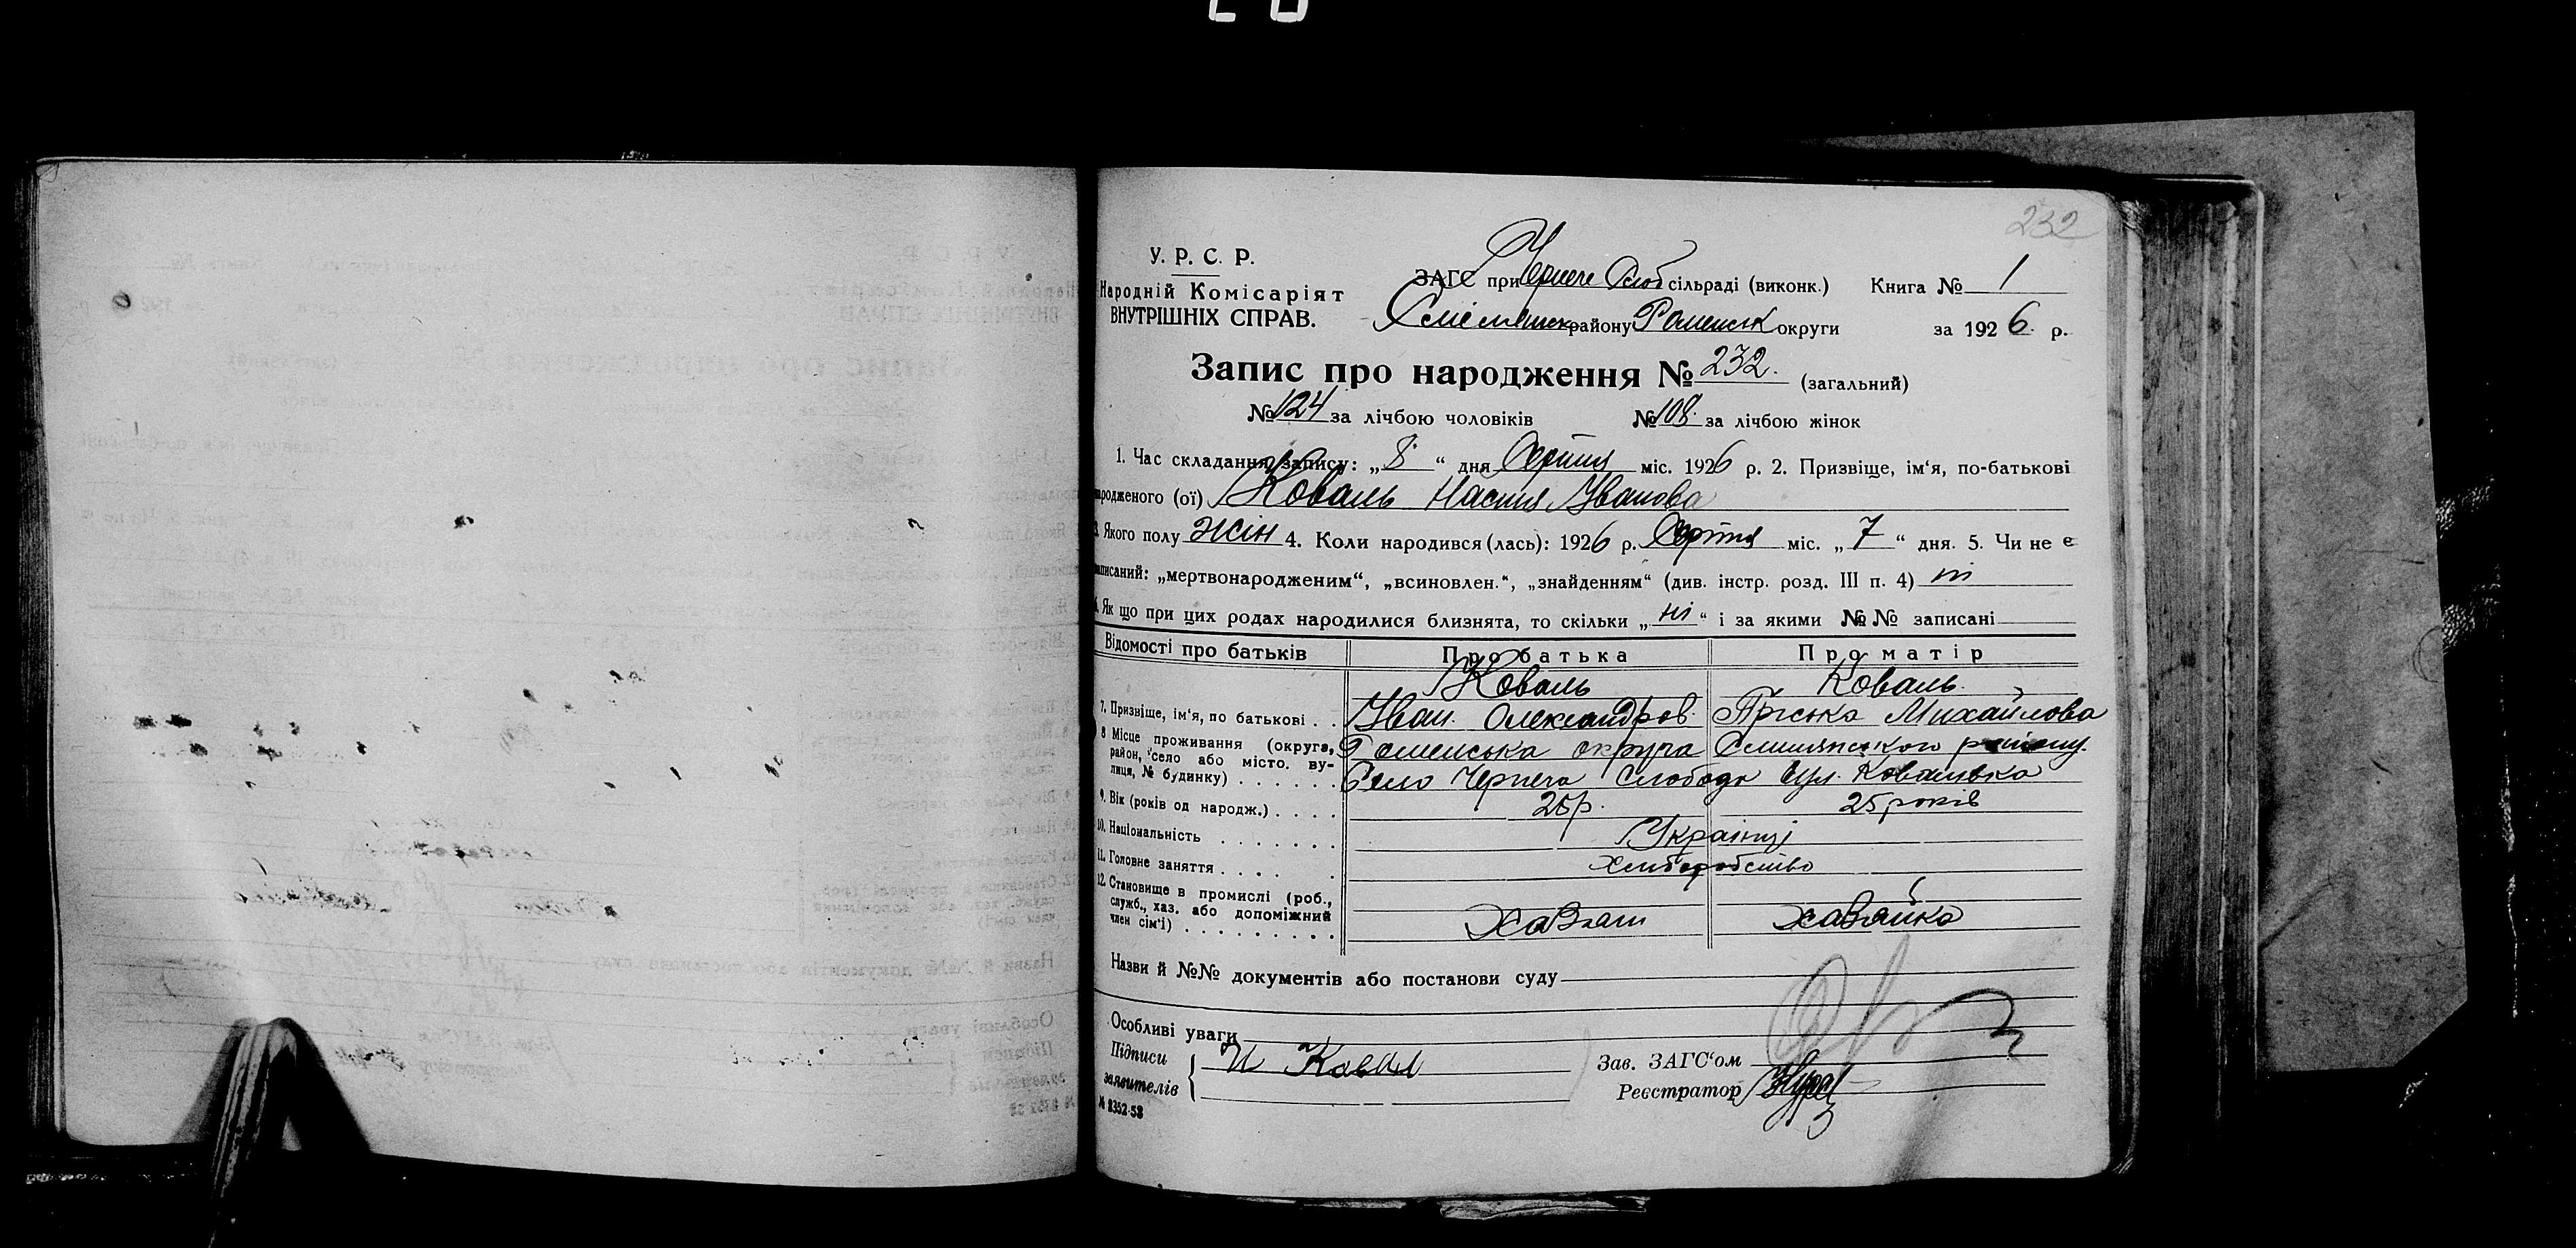 232
У. Р. С. Р.
Народній Комісаріят
ВНУТРІШНІХ СПРАВ.
ЗАГС при Чернече Слоб сільраді (виконк.) Книга № 1
району Роменськ округи за 1926 р.
Запис про народження № 232. (загальний)
№ 124 за лічбою чоловіків № 108. за лічбою жінок
1. Час складання запису: „8“ дня Серпня міс. 1926 р. 2. Призвіще, ім‘я, по-батькові
народженого (ої) Коваль Настя Іванова
3. Якого полу жін 4. Коли народився (лась): 1926 р. Серпня міс. „7“ дня. 5. Чи не є
записаний: „мертвонародженим“, „всиновлен.“, „знайденням“ (див. інстр. розд. III п. 4) ні
6. Як що при цих родах народилися близнята, то скільки „ні“ і за якими №№ записані
Відомості про батьків Про батька Про матір
Коваль Коваль.
7. Призвіще, ім‘я, по батькові . . Іван. Олександров. Пріська Михайлова
8 Місце проживання (округа, район, село або місто, вулиця, № будинку) . . . . . . Роменська округа району
Село Чернеча Слобода вул. Ковалівка
9. Вік (років од народж.) . . . . 25 років
10. Національність . . . . . . . Українці
11. Головне заняття . . . . . Хліборобство
12. Становище в промислі (роб., служб., хаз. або допоміжний член сім‘ї) . . . . . . . . . Хазяїн хазяйка
Назви й №№ документів або постанови суду
Особливі уваги
Підписи И Ковал Зав. ЗАГС‘ом
заявителів Реєстратор
№ 8352-58